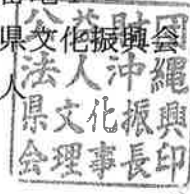 県文化振興会
人
公益財団
法人沖繩
県文化振興
会理事長印